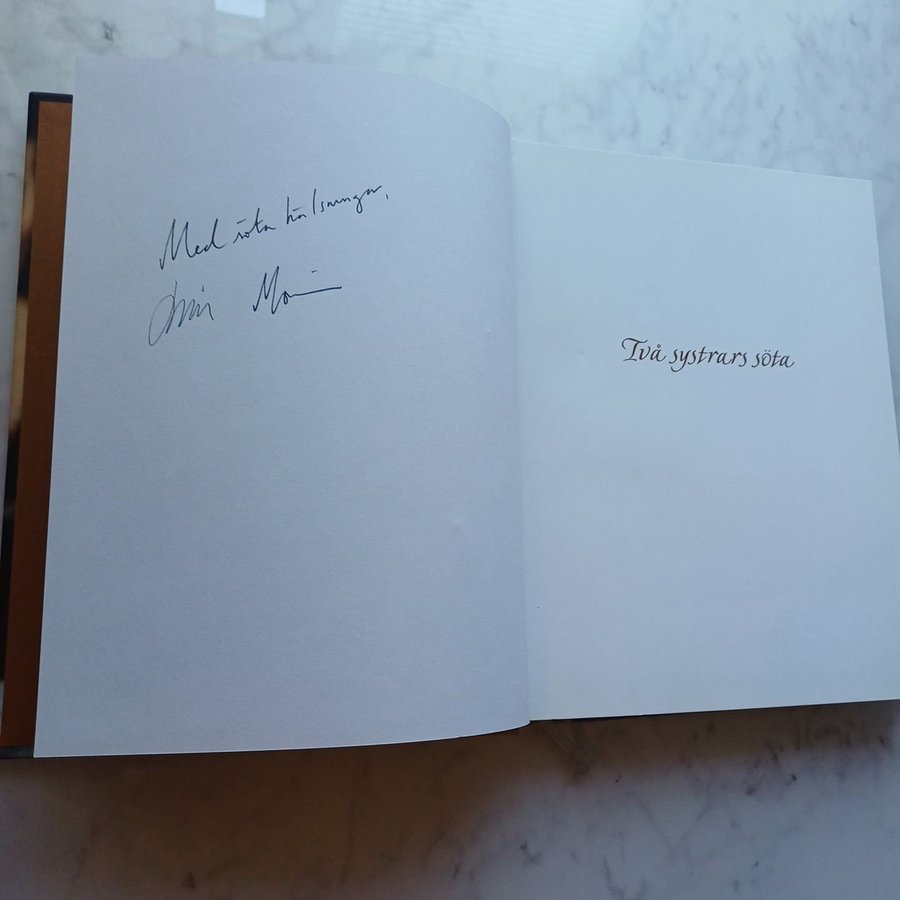 Med söta hälsningar,
Två systrars söta